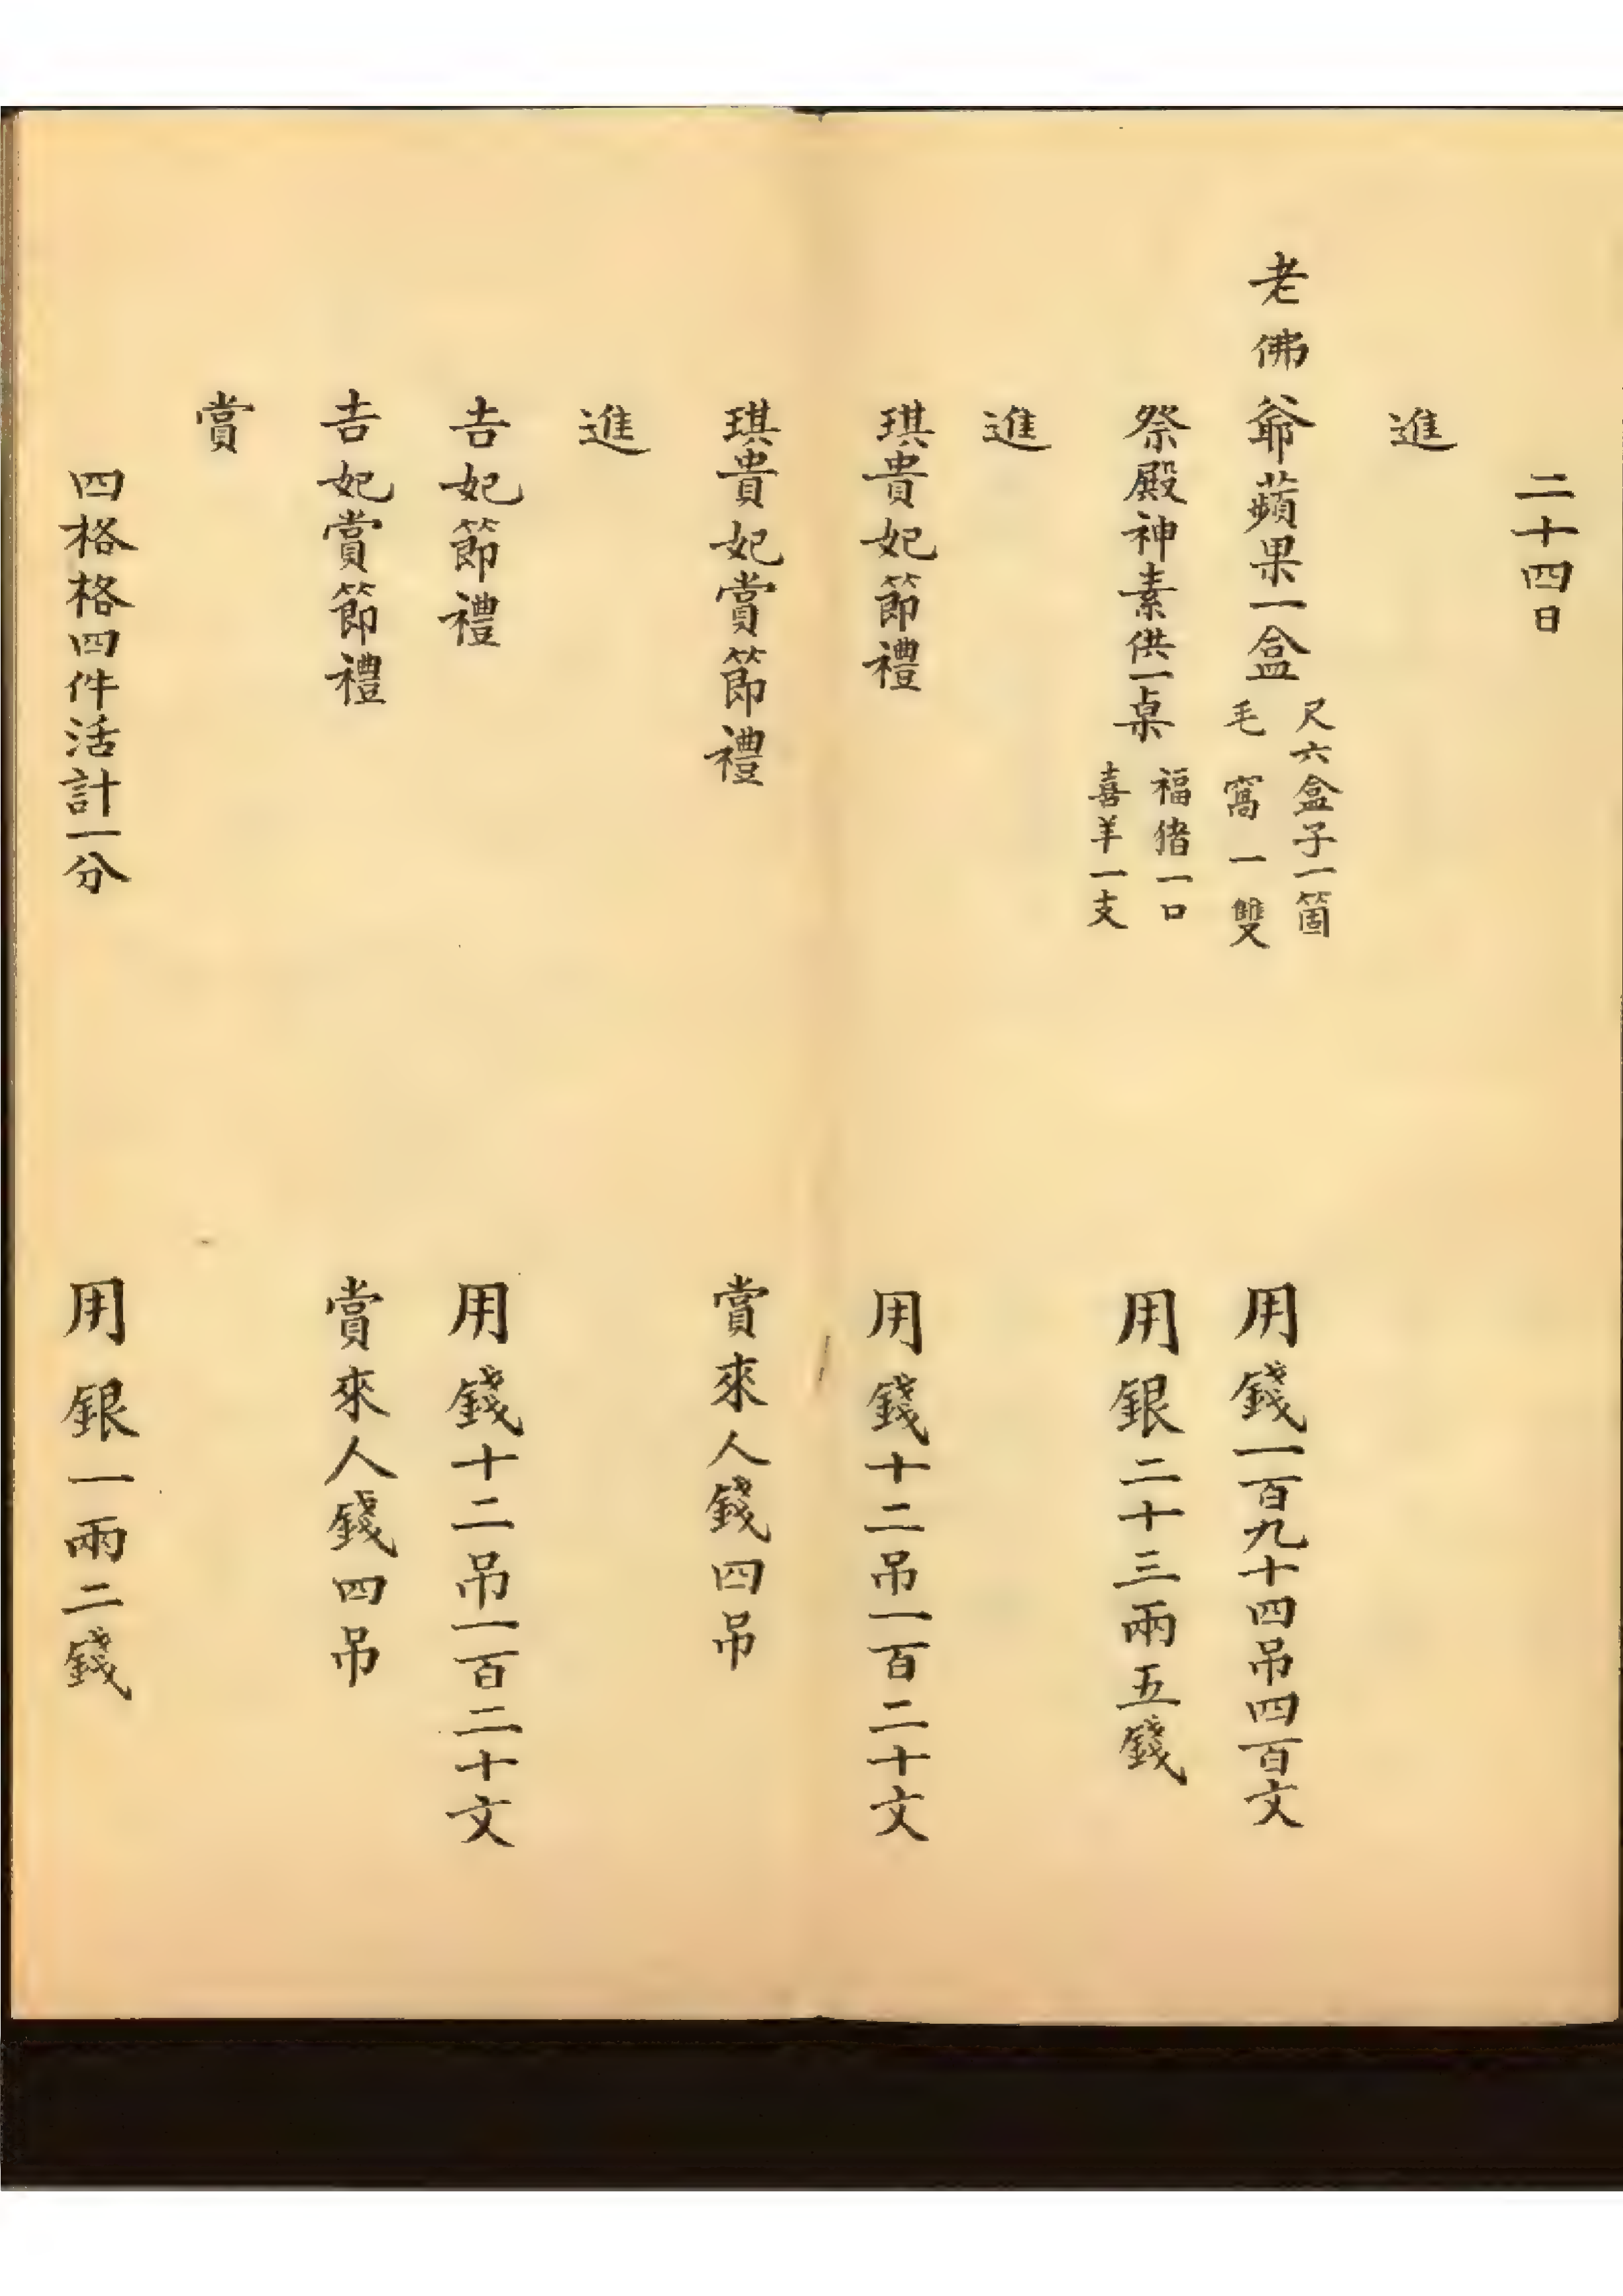 二十四日
進
老佛爺蘋果一盒
尺六盒子一箇
毛窩一雙
用錢一百九十四吊四百文
祭殿神素供一桌
福猪一口
喜羊一支
用銀二十三兩五錢
進
琪貴妃節禮
用錢十二吊一百二十文
琪貴妃賞節禮
賞來人錢四吊
進
吉妃節禮
用錢十二吊一百二十文
吉妃賞節禮
賞來人錢四吊
賞
四格格四件活計一分
用銀一兩二錢